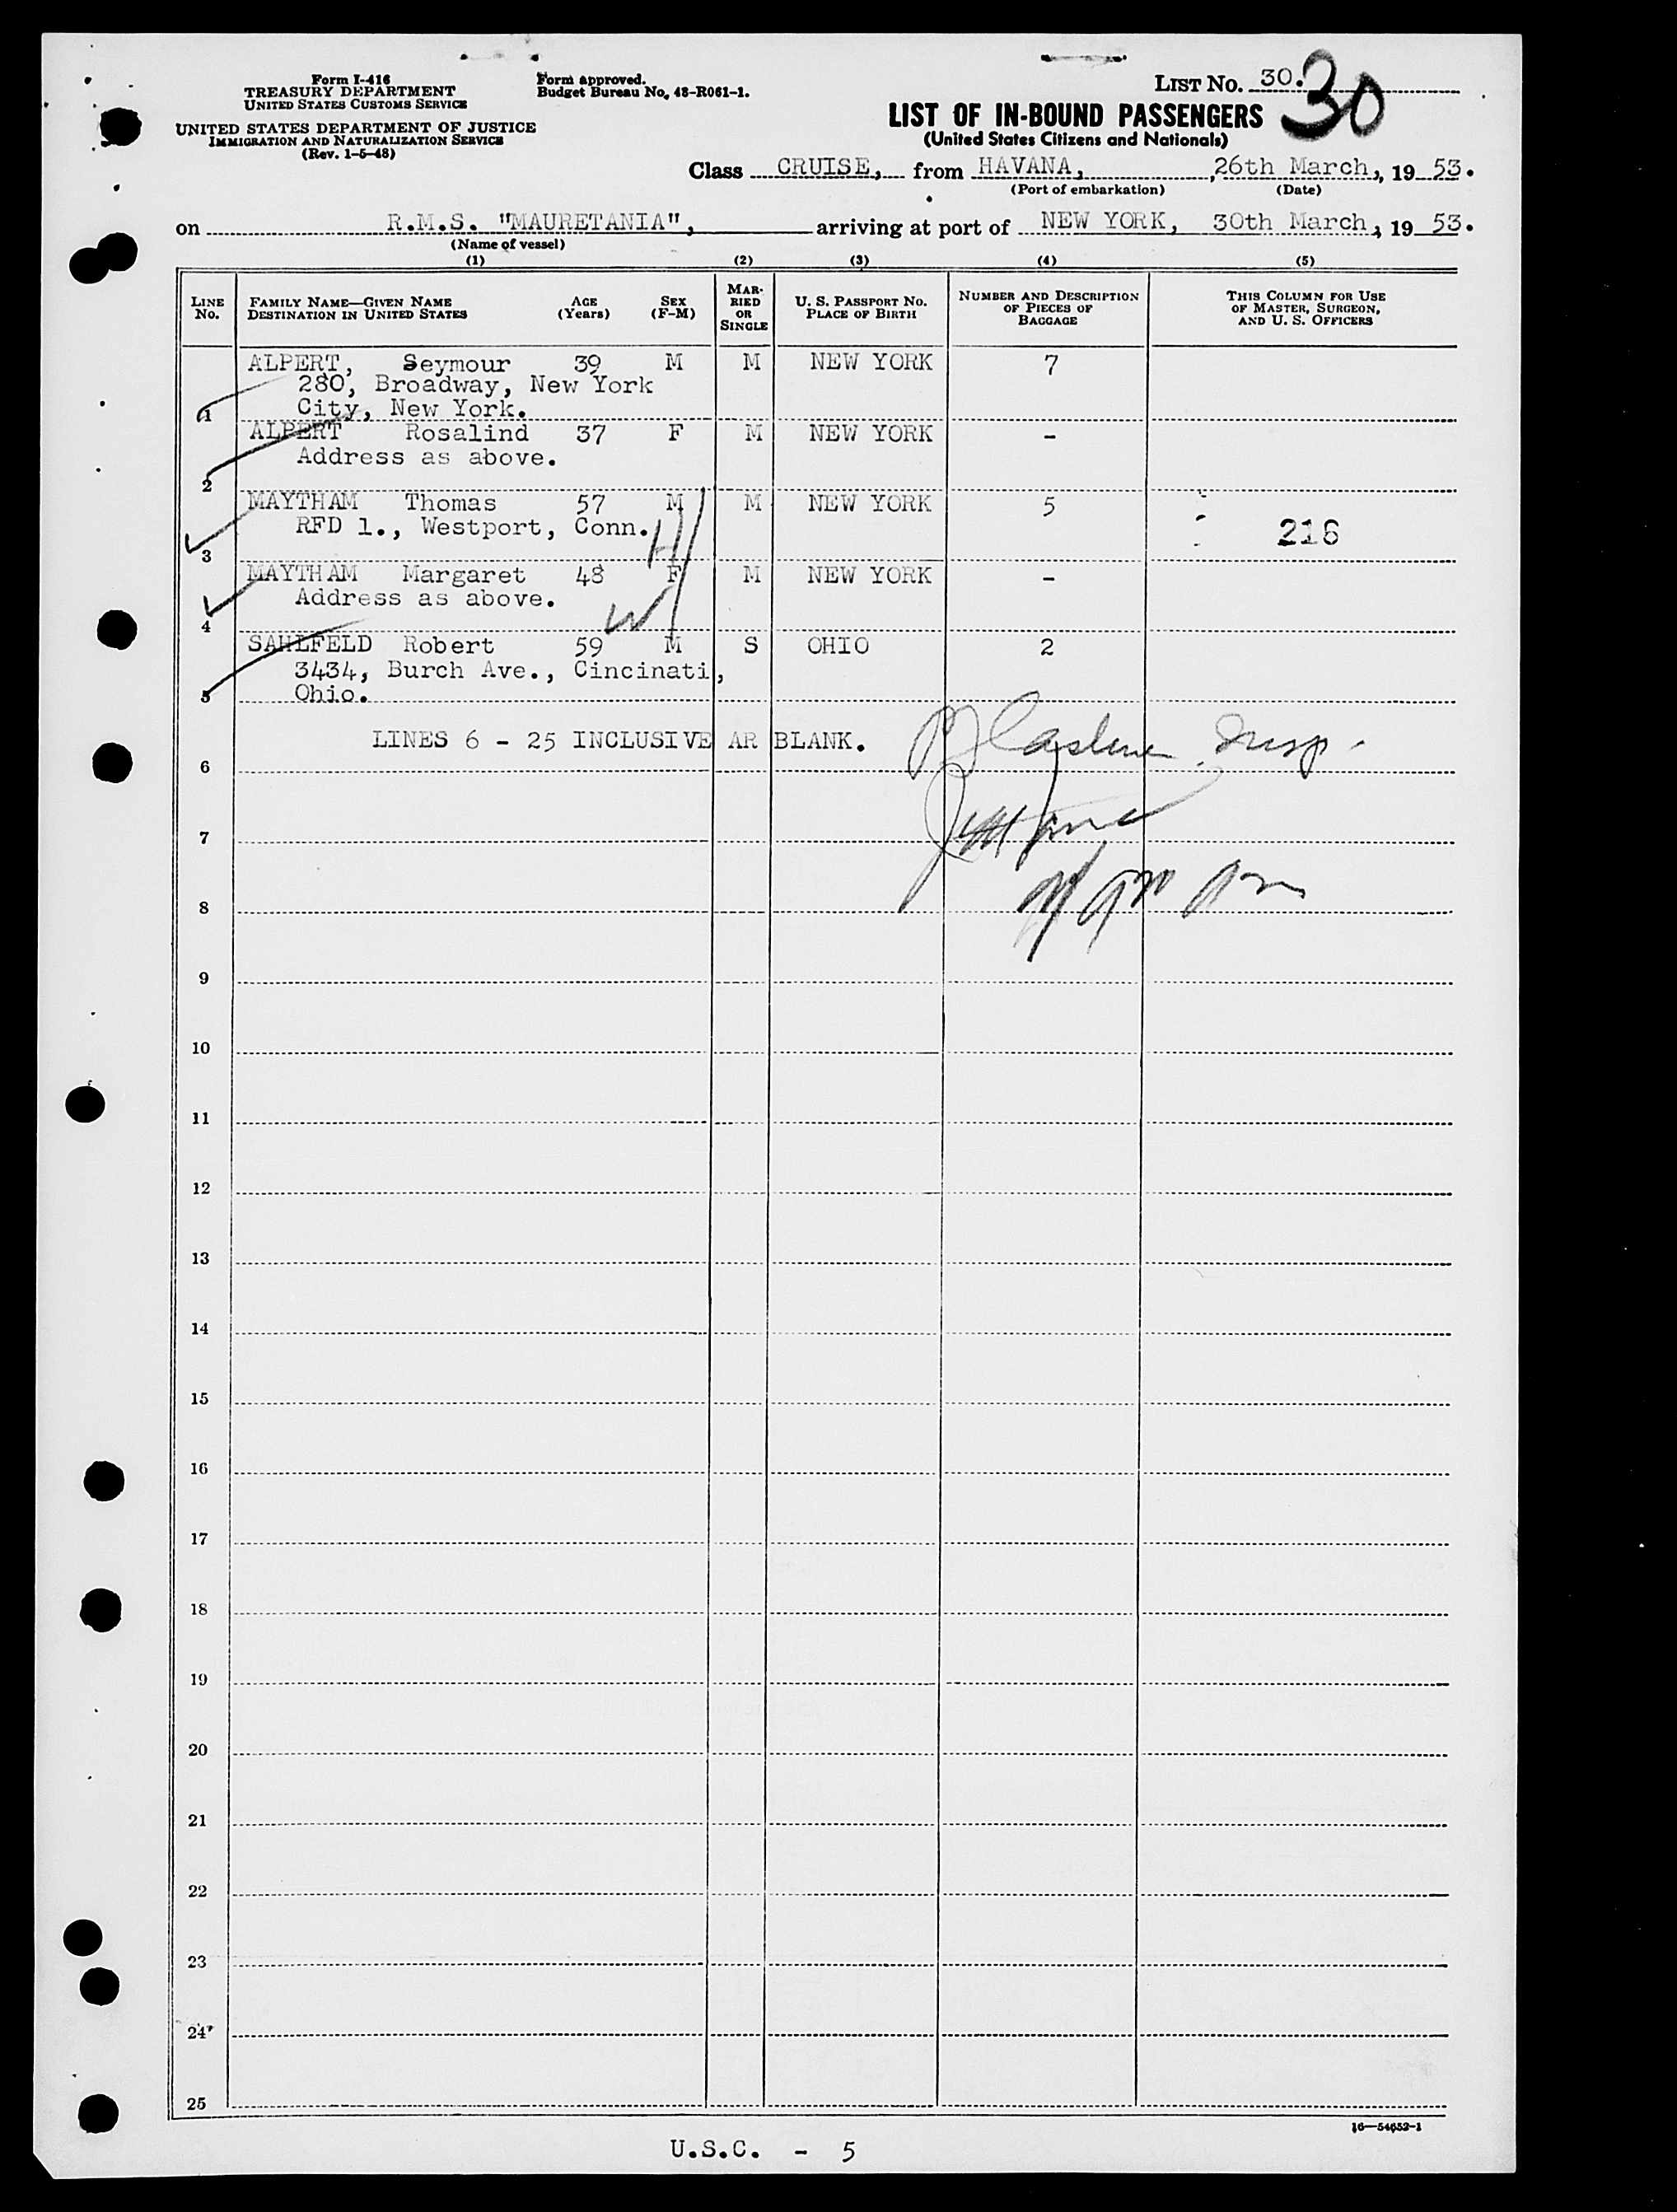 Form I-416
TREASURY DEPARTMENT
UNITED STATES CUSTOMS SERVICE
UNITED STATES DEPARTMENT OF JUSTICE
IMMIGRATION AND NATURALIZATION SERVICE
(Rev. 1-5-48)
Form approved.
Budget Bureau No. 48-R061-1.
LIST No. 30. 30
LIST OF IN-BOUND PASSENGERS
(United States Citizens and Nationals)
Class CRUISE, from HAVANA, , 26th March, , 19 53.
(Port of embarkation) (Date)
on R.M.S. "MAURETANIA", arriving at port of NEW YORK, 30th March, 19 53.
(Name of vessel)
(1) (2) (3) (4) (5)
LINE No. FAMILY NAME—GIVEN NAME DESTINATION IN UNITED STATES AGE (Years) SEX (F-M) MARRIED OR SINGLE U. S. PASSPORT NO. PLACE OF BIRTH NUMBER AND DESCRIPTION OF PIECES OF BAGGAGE THIS COLUMN FOR USE OF MASTER, SURGEON, AND U. S. OFFICERS
ALPERT, Seymour 39 M M NEW YORK 7
280, Broadway, New York
1 City, New York.
ALPERT Rosalind 37 F M NEW YORK -
Address as above.
2
MAYTHAM Thomas 57 M M NEW YORK 5
RFD 1., Westport, Conn. 216
3
MAYTHAM Margaret 48 F M NEW YORK -
Address as above.
4
SAHLFELD Robert 59 M S OHIO 2
3434, Burch Ave., Cincinati,
5 Ohio.
LINES 6 - 25 INCLUSIVE AR BLANK.
6
7
8
9
10
11
12
13
14
15
16
17
18
19
20
21
22
23
24
25
16—54652-1
U.S.C. - 5